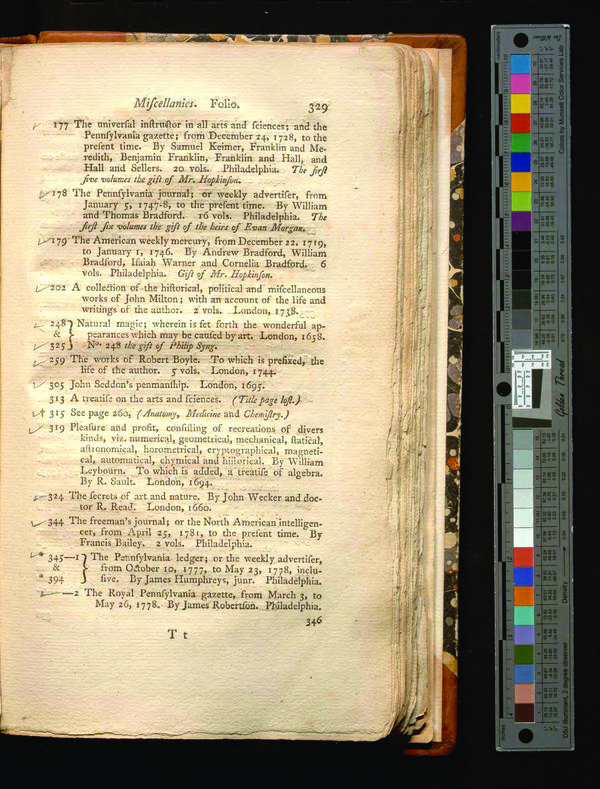 Miſcellanies. Folio. 329
177 The univerſal inſtructor in all arts and ſciences; and the
Pennſylvania gazette; from December 24, 1728, to the
preſent time. By Samuel Keimer, Franklin and Me-
redith, Benjamin Franklin, Franklin and Hall, and
Hall and Sellers. 20 vols. Philadelphia. The firſt
five volumes the gift of Mr. Hopkinſon.
178 The Pennſylvania journal; or weekly advertiſer, from
January 5, 1747-8, to the preſent time. By William
and Thomas Bradford. 16 vols. Philadelphia. The
firſt ſix volumes the gift of the heirs of Evan Morgan.
179 The American weekly mercury, from December 22, 1719,
to January 1, 1746. By Andrew Bradford, William
Bradford, Iſaiah Warner and Cornelia Bradford. 6
vols. Philadelphia. Gift of Mr. Hopkinſon.
202 A collection of the hiſtorical, political and miſcellaneous
works of John Milton; with an account of the life and
writings of the author. 2 vols. London, 1738.
248 } Natural magic; wherein is ſet forth the wonderful ap-
& pearances which may be cauſed by art. London, 1658.
325 } No. 248 the gift of Philip Syng.
259 The works of Robert Boyle. To which is prefixed, the
life of the author. 5 vols. London, 1744.
305 John Seddon's penmanſhip. London, 1695.
313 A treatiſe on the arts and ſciences. (Title page loſt.)
315 See page 260, (Anatomy, Medicine and Chemiſtry.)
319 Pleaſure and profit, conſiſting of recreations of divers
kinds, viz. numerical, geometrical, mechanical, ſtatical,
aſtronomical, horometrical, cryptographical, magneti-
cal, automatical, chymical and hiſtorical. By William
Leybourn. To which is added, a treatiſe of algebra.
By R. Sault. London, 1694.
324 The ſecrets of art and nature. By John Wecker and doc-
tor R. Read. London, 1660.
344 The freeman's journal; or the North American intelligen-
cer, from April 25, 1781, to the preſent time. By
Francis Bailey. 2 vols. Philadelphia.
* 345—1 } The Pennſylvania ledger; or the weekly advertiſer,
& from October 10, 1777, to May 23, 1778, inclu-
* 394 } ſive. By James Humphreys, junr. Philadelphia.
—2 The Royal Pennſylvania gazette, from March 3, to
May 26, 1778. By James Robertſon. Philadelphia.
346
T t
Colors by Munsell Color Services Lab
Golden Thread
Density
D50 Illuminant, 2 degree observer